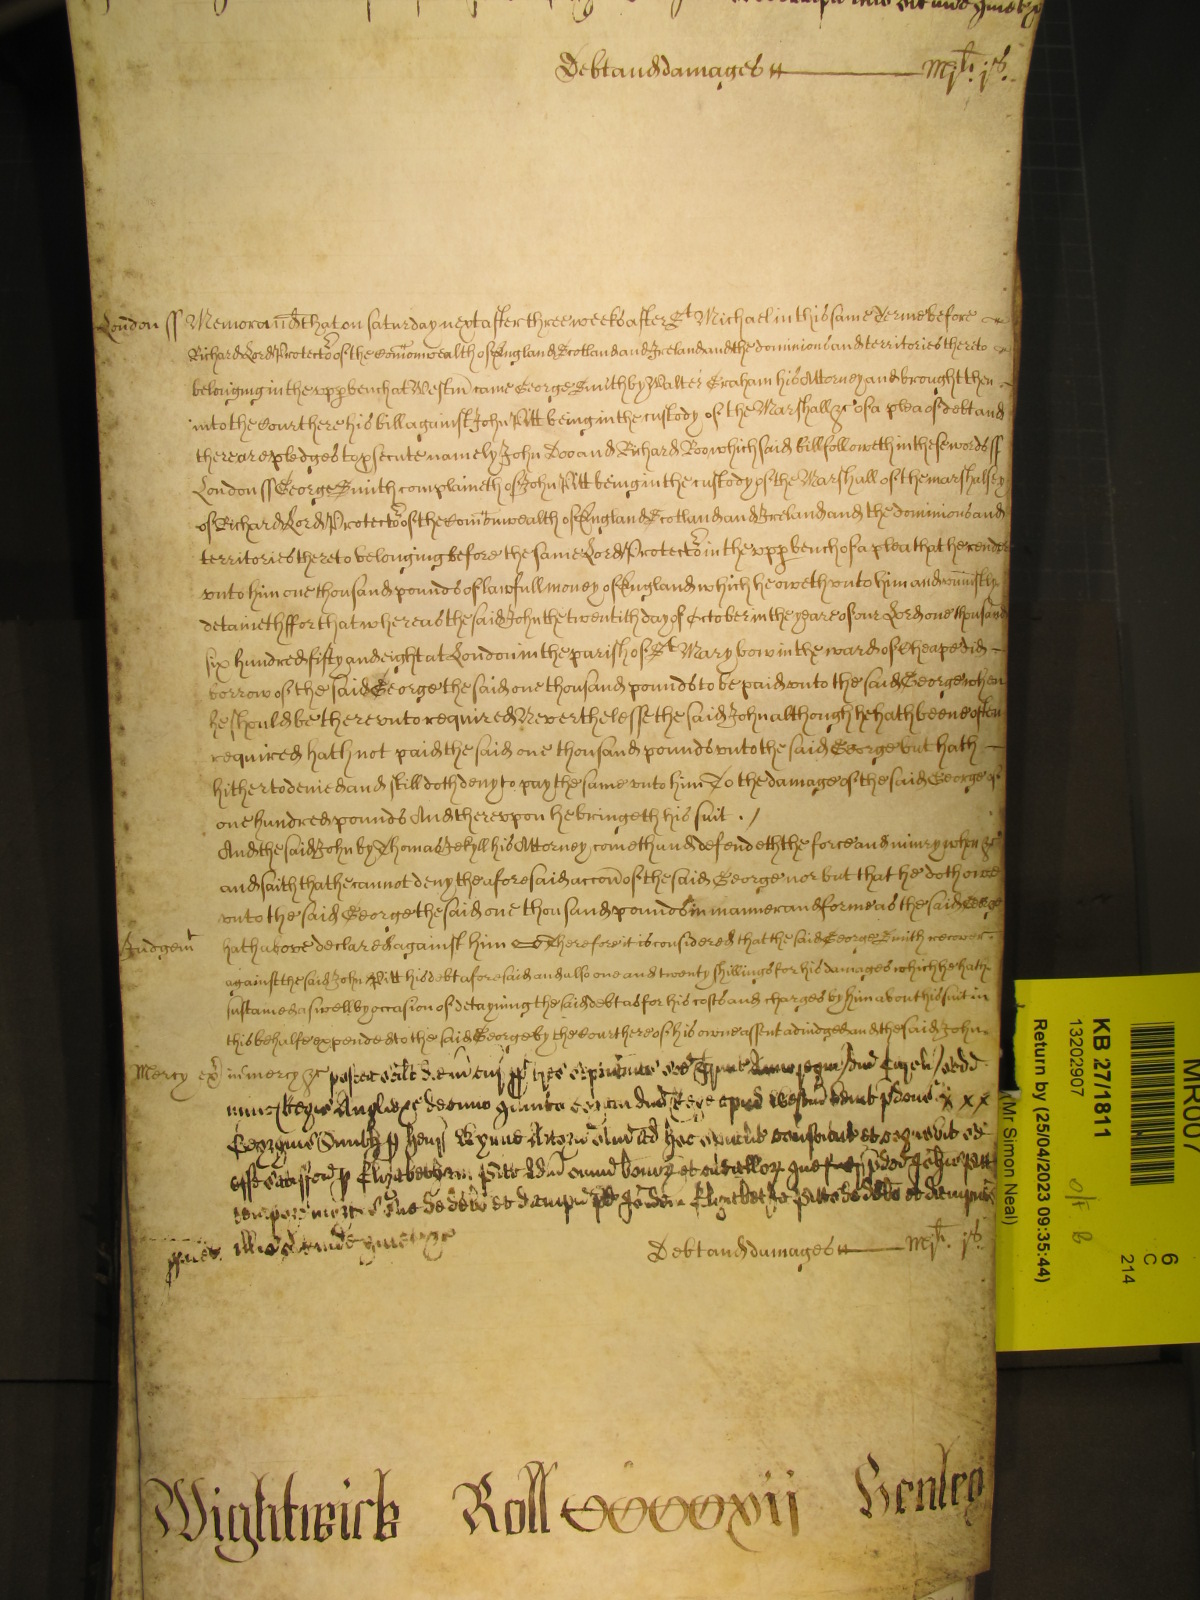 Debt and damages — Mjli js.
London ss Memorand that on saturday next after three weeks after St Michael in this same Terme before
Richard Lord Protector of the Comonwealth of England Scotland and Ireland and the dominions and territories thereto
belonging in the upp bench at Westm came George Smith by Walter Graham his Attorney and brought then
into the Court here his bill against John Pitt being in the custody of the Marshall &c of a plea of debt and
there are pledges to psecute namely John Doo and Richard Roo which said bill followeth in these words ss
London ss George Smith complaineth of John Pitt being in the custody of the Marshall of the marshalsey
of Richard Lord Protector of the Comonwealth of England Scotland and Ireland and the dominions and
territories thereto belonging before the same Lord Protector in the upp bench of a plea that he render
unto him one thousand pounds of lawfull money of England which he oweth unto him and uniustly
detaineth ffor that whereas the said John the twentith day of October in the yeare of our Lord one thousand
six hundred fifty and eight at London in the parish of St Mary bow in the ward of Cheape did
borrow of the said George the said one thousand pounds to be paid unto the said George when
he should be thereunto required Neverthelesse the said John although he hath beene often
required hath not paid the said one thousand pounds unto the said George but hath
hitherto denied and still doth deny to pay the same unto him To the damage of the said George of
one hundred pounds And thereupon he bringeth his suit
And the said John by Thomas Jekyll his Attorney cometh and defendeth the force and iniury when &c
and saith that he cannot deny the aforesaid accon of the said George nor but that he doth owe
unto the said George the said one thousand pounds in manner and forme as the said George
Judgemt hath above declared against him Therefore it is considered that the said George Smith recover
against the said John Pitt his debt aforesaid and also one and twenty shillings for his damages which he hath
sustained aswell by occasion of detayning the said debt as for his costs and charges by him about his suit in
this behalfe expended to the said George by the Court here of his owne assent adiudged and the said John
Mercy in mercy &c postea scilt die
nunc Regis Angliae &c decimo quinto coram dno Rege apud Westm
Georgius Smith p Henr Wynne Attorn
esse satisfcm p Elizabetham Pitt
tempore mortis sue de debo et dampn Elizabetha Pitt de debo et dampnis
illis sit inde quieta &c
Debt and damages — Mjli js.
Wightwick Roll CCCCxvij Henley
MR007
6
C
214
KB 27/1811
13202907
Return by (25/04/2023 09:35:44)
(Mr Simon Neal)